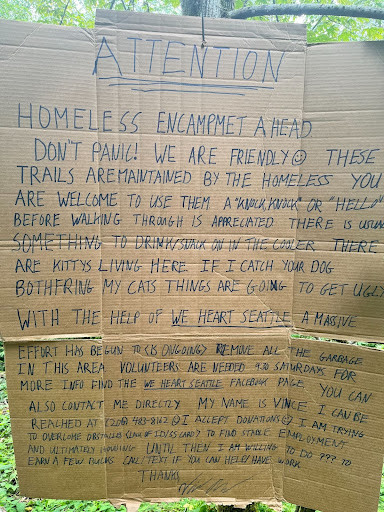 ATTENTION
HOMELESS ENCAMPMET AHEAD
DON'T PANIC! WE ARE FRIENDLY☺ THESE
TRAILS ARE MAINTAINED BY THE HOMELESS YOU
ARE WELCOME TO USE THEM A "KNOCK, KNOCK" OR "HELLO"
BEFORE WALKING THROUGH IS APPRECIATED THERE IS
SOMETHING TO DRINK/SNACK ON IN THE COOLER THERE
ARE KITTYS LIVING HERE. IF I CATCH YOUR DOG
BOTHERING MY CATS THINGS ARE GOING TO GET UGLY
WITH THE HELP OF WE HEART SEATTLE A MASSIVE
EFFORT HAS BEGUN TO (IS ONGOING) REMOVE ALL THE GARBAGE
IN THIS AREA VOLUNTEERS ARE NEEDED SATURDAYS FOR
MORE INFO FIND THE WE HEART SEATTLE FACEBOOK PAGE YOU CAN
ALSO CONTACT ME DIRECTLY MY NAME IS VINCE I CAN BE
REACHED AT (206) 483-8162 ☺ I ACCEPT DONATIONS☺ I AM TRYING
TO OVERCOME OBSTACLES (LACK OF ID/SS CARD) TO FIND STABLE EMPLOYMENT
AND ULTIMATELY HOUSING UNTIL THEN I AM WILLING TO DO ??? TO
EARN A FEW BUCKS CALL/TEXT IF YOU CAN HELP/HAVE WORK
THANKS